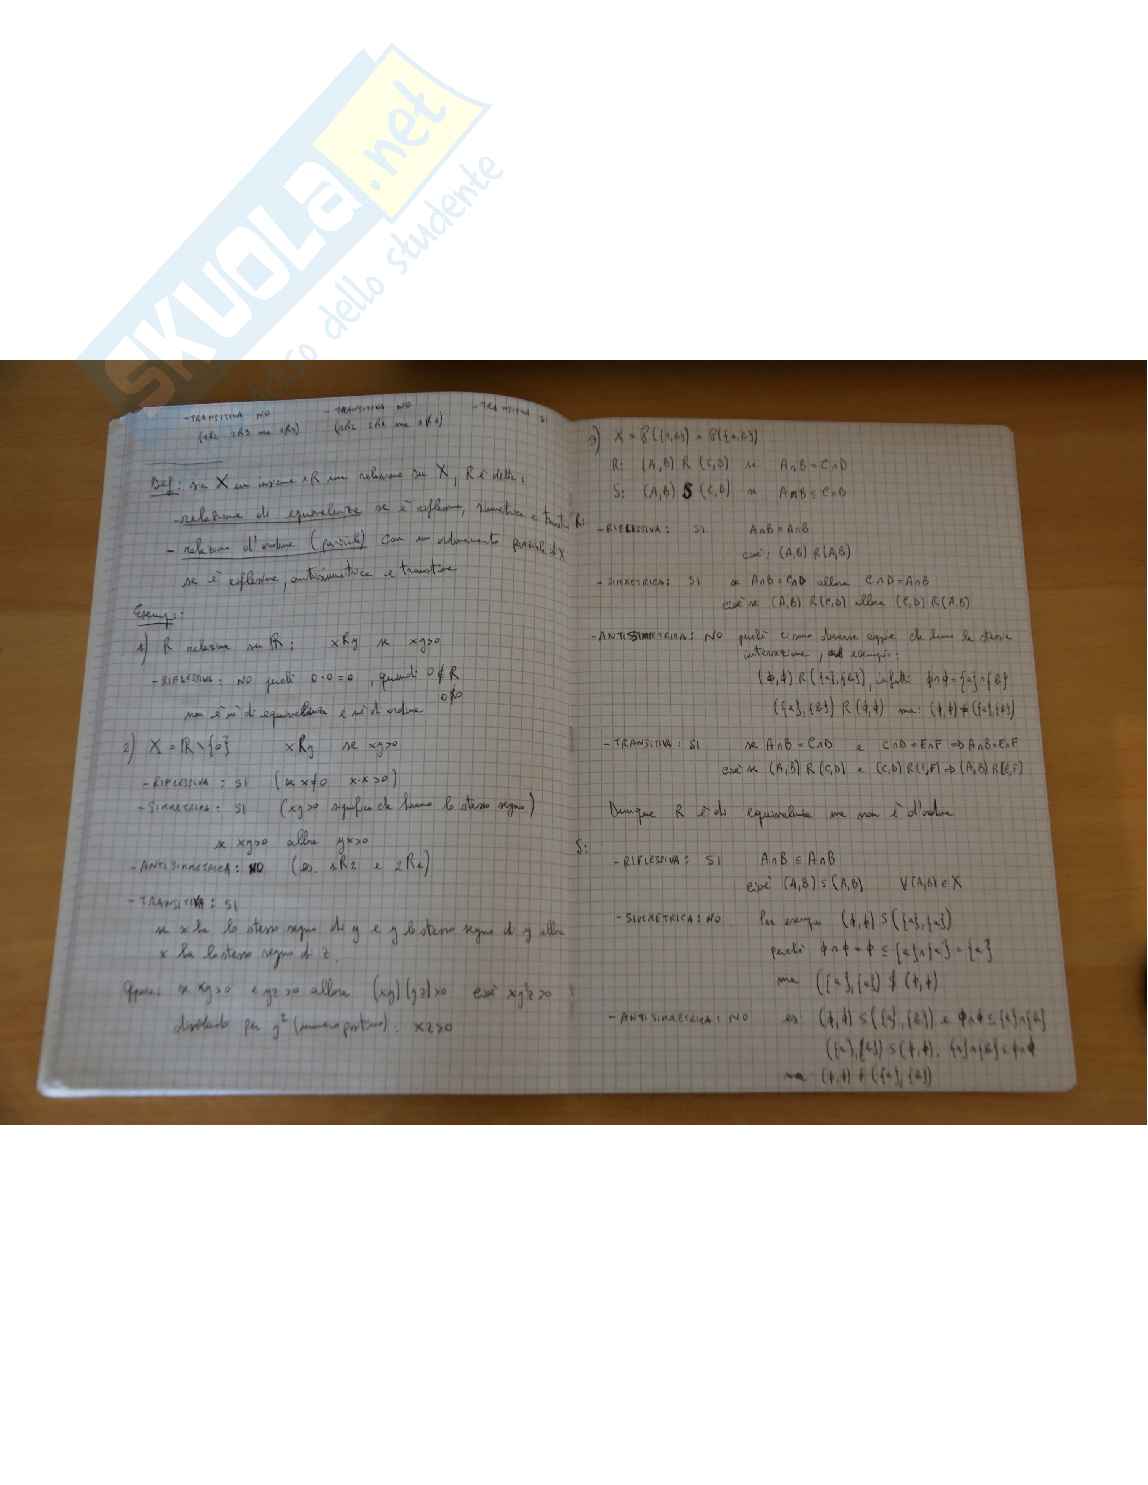 SKUOLA.net
dello studente
- TRANSITIVA NO
- TRANSITIVA NO
- TRANSITIVA SI
(1R2 2R3 ma 1R3)
Def: sia X un insieme e R una relazione su X, R è detta:
- relazione di equivalenza se è riflessiva, simmetrica e transitiva
- relazione d'ordine (parziale) con un ordinamento parziale di X
se è riflessiva, antisimmetrica e transitiva
Esempi:
1) R relazione su ℝ: xRy se xy>0
- RIFLESSIVA: NO perché 0·0=0, quindi 0 R̸ 0
non è né di equivalenza e né d'ordine
2) X = ℝ\{0} xRy se xy>0
- RIFLESSIVA: SI (se x≠0 x·x>0)
- SIMMETRICA: SI (xy>0 significa che hanno lo stesso segno)
se xy>0 allora yx>0
- ANTISIMMETRICA: NO (es. 1R2 e 2R1)
- TRANSITIVA: SI
se x ha lo stesso segno di y e y lo stesso segno di y allora
x ha lo stesso segno di z.
Oppure: se xy>0 e yz>0 allora (xy)(yz)>0 cioè xy²z>0
dividendo per y² (numero positivo): xz>0
3) X = P({a,b}) × P({a,b})
R: (A,B) R (C,D) se A∩B=C∩D
S: (A,B) S (C,D) se A∩B⊆C∩D
R:
- RIFLESSIVA: SI A∩B=A∩B
cioè: (A,B) R (A,B)
- SIMMETRICA: SI se A∩B=C∩D allora C∩D=A∩B
cioè se (A,B) R (C,D) allora (C,D) R (A,B)
- ANTISIMMETRICA: NO perché ci sono diverse coppie che hanno la stessa
intersezione, ad esempio:
(∅,∅) R ({a},{b}), infatti ∅∩∅={a}∩{b}
({a},{b}) R (∅,∅) ma: (∅,∅)≠({a},{b})
- TRANSITIVA: SI se A∩B=C∩D e C∩D=E∩F ⇒ A∩B=E∩F
cioè se (A,B) R (C,D) e (C,D) R (E,F) ⇒ (A,B) R (E,F)
Dunque R è di equivalenza ma non è d'ordine
S:
- RIFLESSIVA: SI A∩B⊆A∩B
cioè (A,B) S (A,B) ∀(A,B)∈X
- SIMMETRICA: NO Per esempio (∅,∅) S ({a},{a})
perché ∅∩∅=∅⊆{a}∩{a}={a}
ma ({a},{a}) S̸ (∅,∅)
- ANTISIMMETRICA: NO es: (∅,∅) S ({a},{b}) e ∅∩∅⊆{a}∩{b}
({a},{b}) S (∅,∅), {a}∩{b}⊆∅∩∅
ma (∅,∅)≠({a},{b})